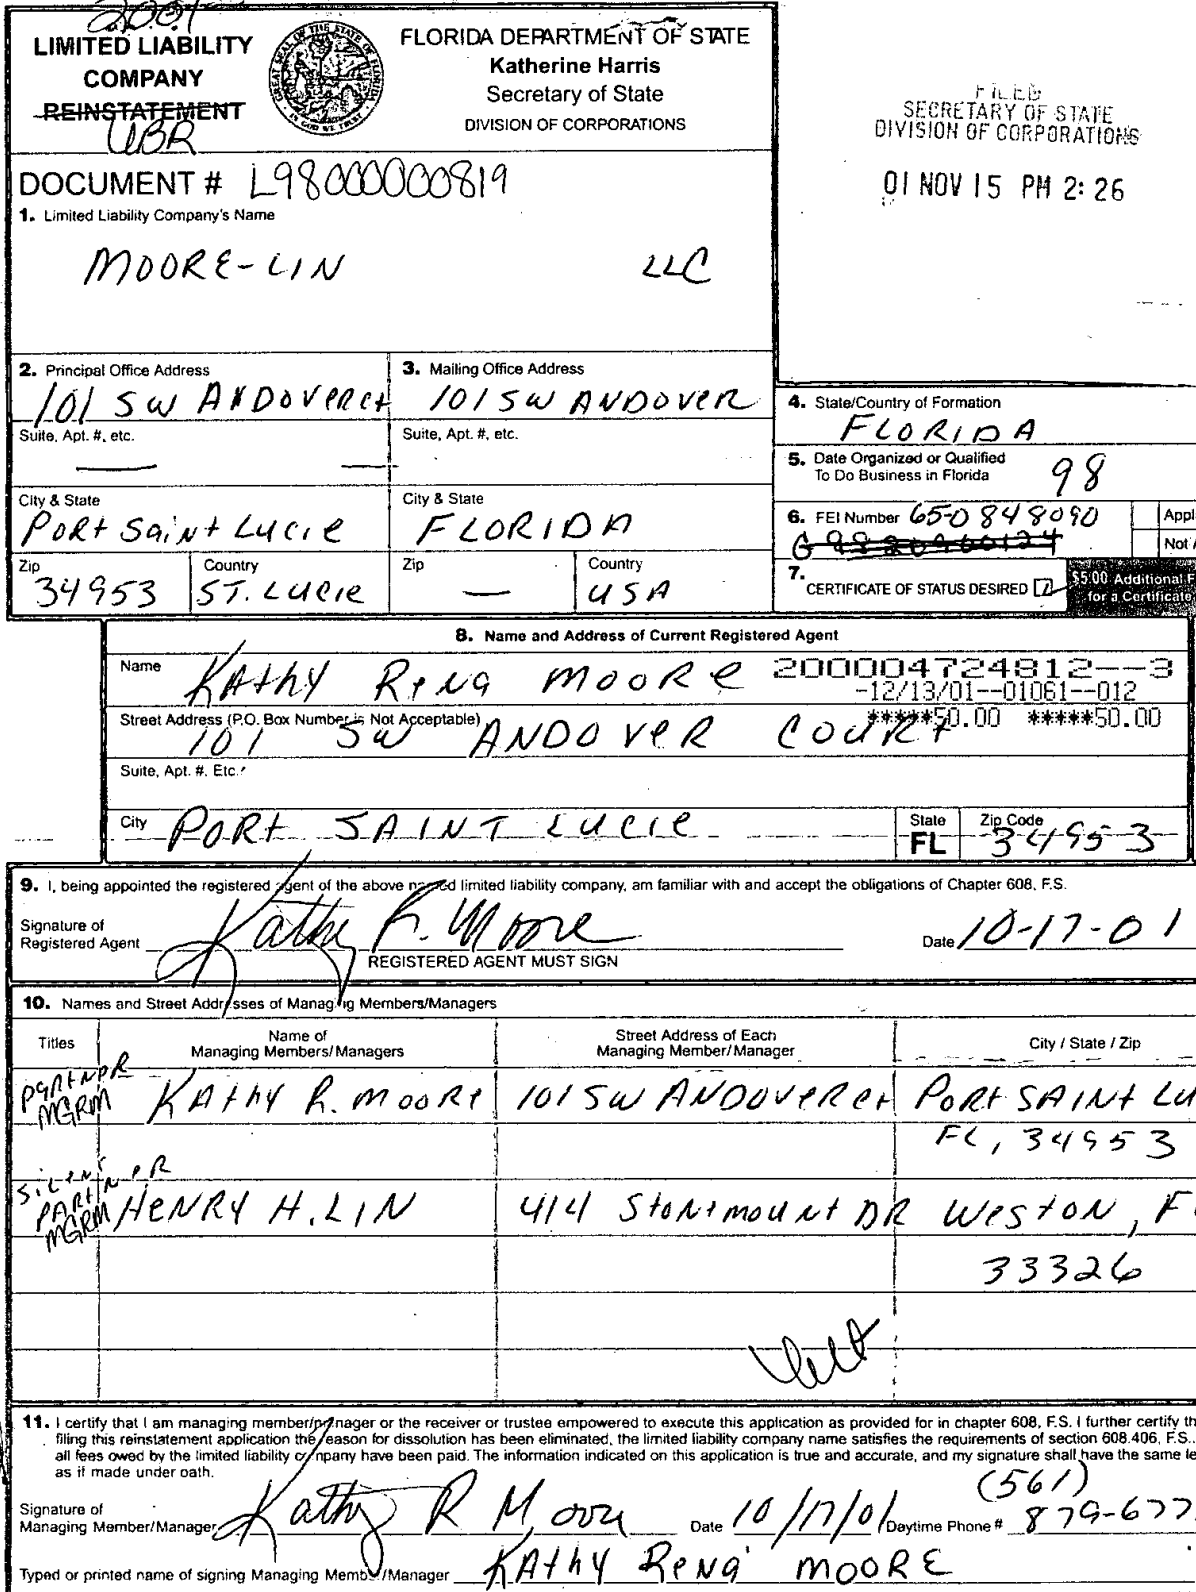 2001
LIMITED LIABILITY
COMPANY
REINSTATEMENT
UBR
FLORIDA DEPARTMENT OF STATE
Katherine Harris
Secretary of State
DIVISION OF CORPORATIONS
FILED
SECRETARY OF STATE
DIVISION OF CORPORATIONS
01 NOV 15 PM 2:26
DOCUMENT # L98000000819
1. Limited Liability Company's Name
MOORE-LIN LLC
2. Principal Office Address
101 SW ANDOVER ct
3. Mailing Office Address
101 SW ANDOVER
Suite, Apt. #, etc.
—
Suite, Apt. #, etc.
City & State
PORt Saint Lucie
City & State
FLORIDA
Zip
34953
Country
ST. Lucie
Zip
—
Country
USA
4. State/Country of Formation
FLORIDA
5. Date Organized or Qualified
To Do Business in Florida
98
6. FEI Number 650848090
G98209600124
Appl
Not A
7. CERTIFICATE OF STATUS DESIRED
$5.00 Additional F
for a Certificate
8. Name and Address of Current Registered Agent
Name KAthy Rena MOORE
200004724812--3
-12/13/01--01061--012
*****50.00 *****50.00
Street Address (P.O. Box Number is Not Acceptable)
101 SW ANDOVER COURt
Suite, Apt. #. Etc.
City PORt SAINT Lucie
State
FL
Zip Code
34953
9. I, being appointed the registered agent of the above named limited liability company, am familiar with and accept the obligations of Chapter 608, F.S.
Signature of
Registered Agent Kathy R. Moore
REGISTERED AGENT MUST SIGN
Date 10-17-01
10. Names and Street Addresses of Managing Members/Managers
Titles
Name of
Managing Members/Managers
Street Address of Each
Managing Member/Manager
City / State / Zip
PARtNeR
MGRM
KAthy R. MOORe
101 SW ANDOVER ct
PORt SAINt Lu
FL, 34953
SiLeNt
PARtNeR
MGRM
HENRY H. LIN
414 Stonemount DR
Weston, F
33326
11. I certify that I am managing member/manager or the receiver or trustee empowered to execute this application as provided for in chapter 608, F.S. I further certify th
filing this reinstatement application the reason for dissolution has been eliminated, the limited liability company name satisfies the requirements of section 608.406, F.S.,
all fees owed by the limited liability company have been paid. The information indicated on this application is true and accurate, and my signature shall have the same le
as if made under oath.
Signature of
Managing Member/Manager Kathy R Moore
Date 10/17/01
Daytime Phone # (561)
879-677
Typed or printed name of signing Managing Member/Manager KAthy Rena MOORE